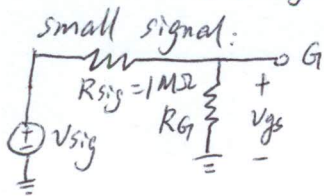 small signal:
G
Rsig = 1MΩ
+
RG
vgs
+
vsig
-
-